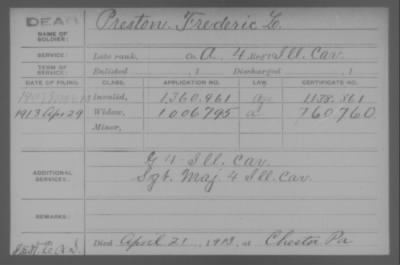 DEAD
Preston, Frederic L.
NAME OF
SOLDIER:
SERVICE:
Late rank,
Co. A, 4 Reg't Ill. Cav.
TERM OF
SERVICE:
Enlisted , 1
Discharged , 1
DATE OF FILING. CLASS. APPLICATION NO. LAW. CERTIFICATE NO.
Invalid, 1360.961 1138.861
1913 Apr 29 Widow, 1006795 760760
Minor,
ADDITIONAL
SERVICES:
G 4 Ill. Cav.
Sgt. Maj. 4 Ill. Cav.
REMARKS:
Died April 21, 1913, at Chester Pa